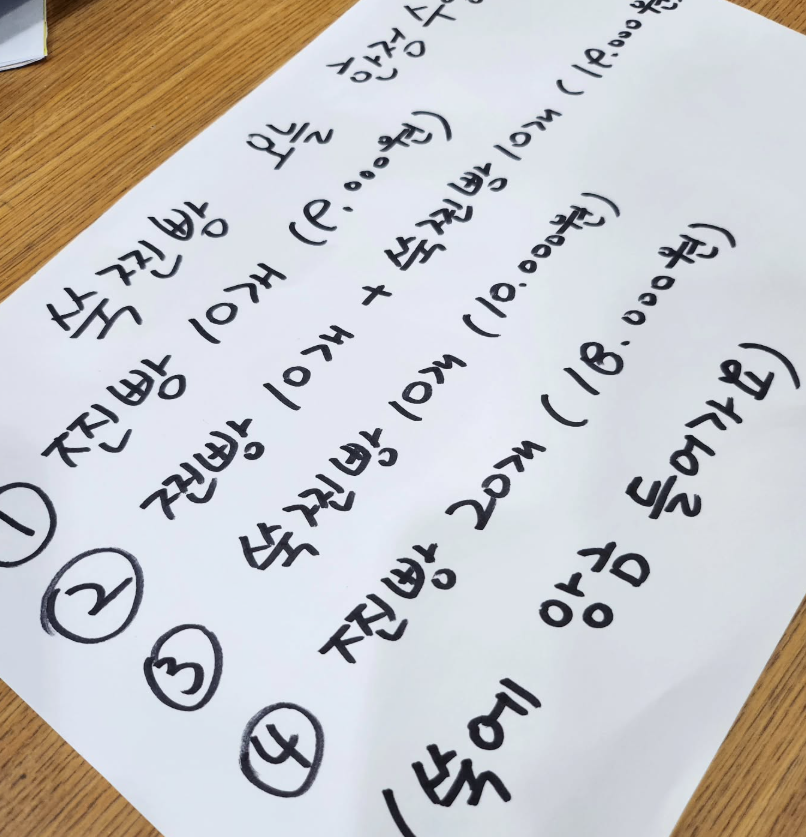 쑥찐빵 오늘 한정수
① 찐빵 10개 (9.000원)
② 찐빵 10개 + 쑥찐빵 10개 (19.000원
③ 쑥찐빵 10개 (10.000원)
④ 찐빵 20개 (18.000원)
(쑥에 앙금 들어가요)